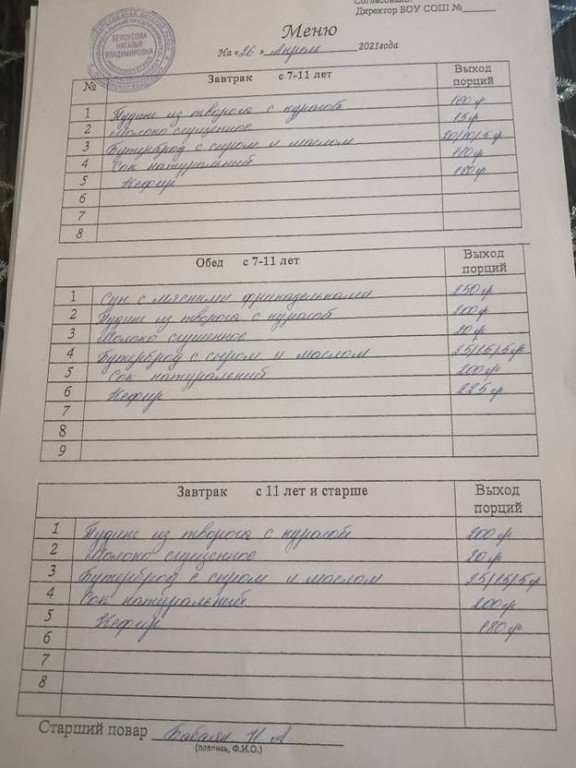 Согласовано:
Директор БОУ СОШ №
БЕЛОУСОВА
НАТАЛЬЯ
ВЛАДИМИРОВНА
Меню
На «26» Апреля 2021года
№ Завтрак с 7-11 лет Выход порций
1 Пудинг из творога с курагой
2 Молоко сгущенное 15 г
3 Бутерброд с сыром и маслом 20/10/5 г
4 Сок натуральный 180 г
5 Кефир 180 г
6
7
8
Обед с 7-11 лет Выход порций
1 Суп с мясными фрикадельками 250 г
2 Пудинг из творога с курагой 200 г
3 Молоко сгущенное 20 г
4 Бутерброд с сыром и маслом 25/15/5 г
5 Сок натуральный 200 г
6 Кефир 225 г
7
8
9
Завтрак с 11 лет и старше Выход порций
1 Пудинг из творога с курагой 200 г
2 Молоко сгущенное 20 г
3 Бутерброд с сыром и маслом 25/15/5 г
4 Сок натуральный 200 г
5 Кефир 180 г
6
7
8
Старший повар Бабаян Н А
(подпись, Ф.И.О.)